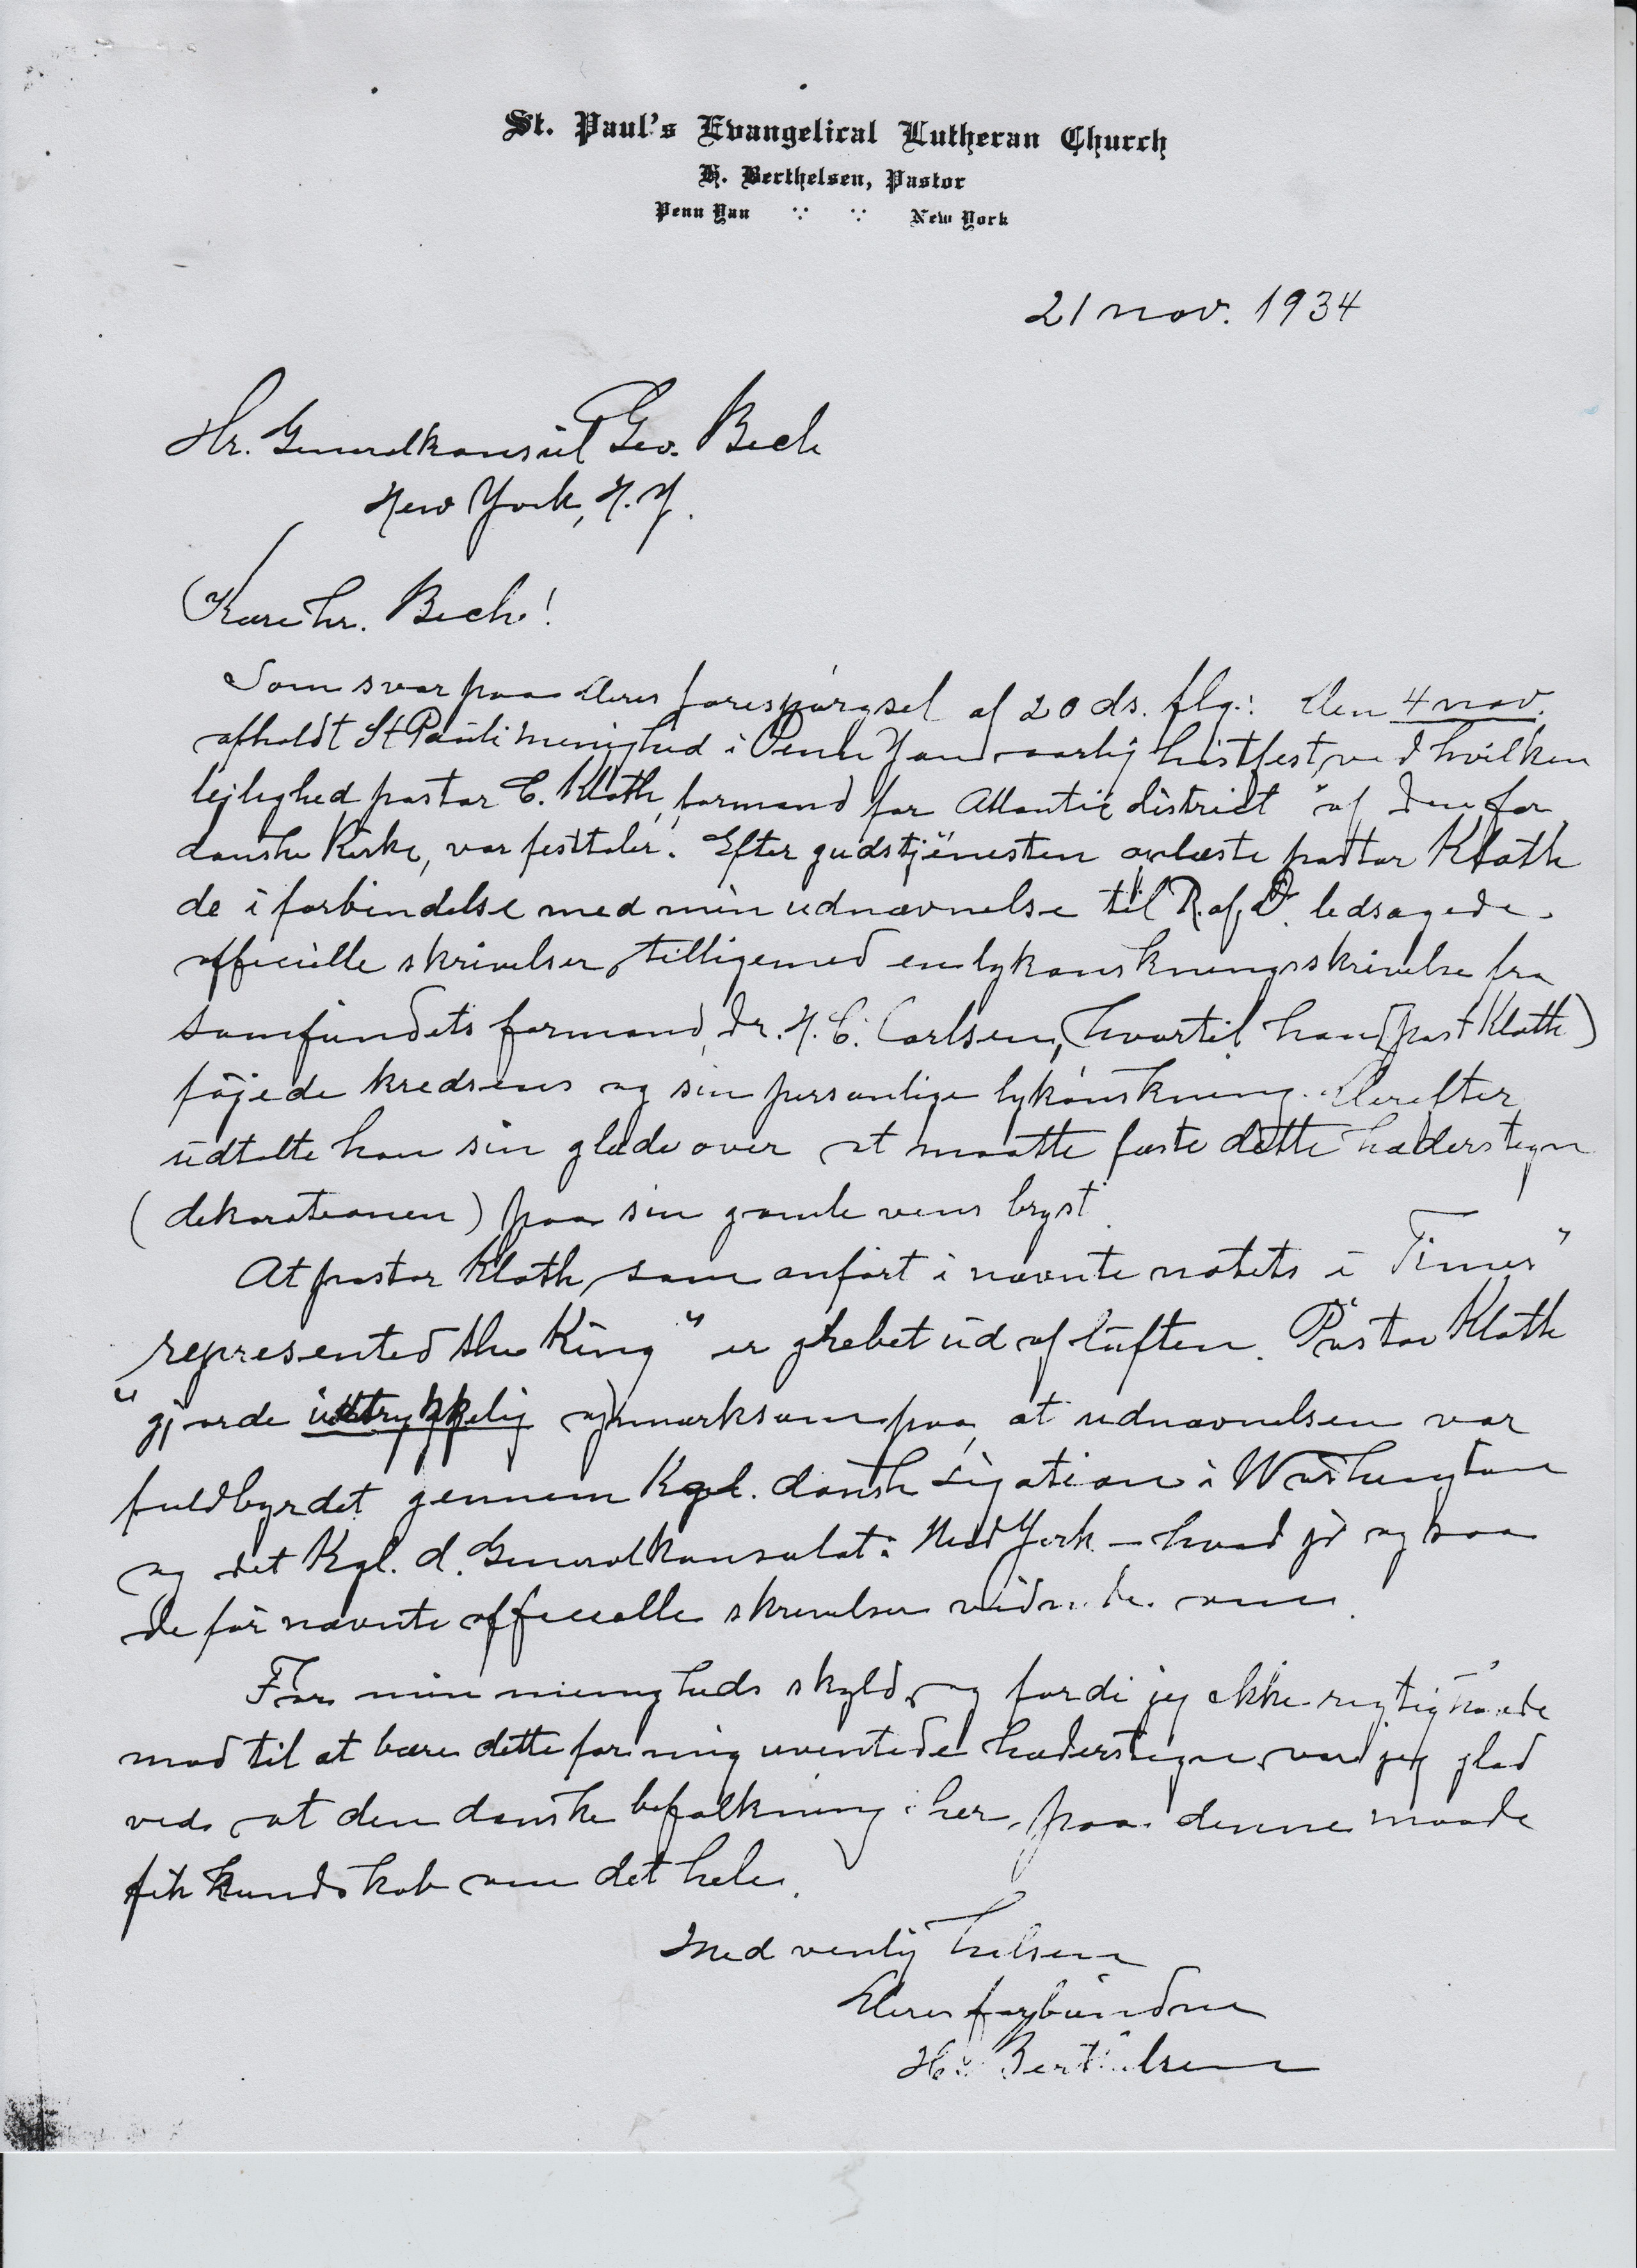 St. Paul's Evangelical Lutheran Church
H. Berthelsen, Pastor
Penn Yan ∵ ∵ New York
21 nov. 1934
Hr. Generalkonsul Geo. Bech
New York, N.Y.
Kære hr. Bech!
Som svar paa Deres forespørgsel af 20 ds. flg.: Den 4 nov.
afholdt St Pauli menighed i Penn Yan aarlig høstfest, ved hvilken
lejlighed pastor C. Kloth, formand for Atlantic district af den for.
danske Kirke, var festtaler. Efter gudstjenesten oplæste pastor Kloth
de i forbindelse med min udnævnelse til R. af D. ledsagede
officielle skrivelser, tilligemed en lykønskningsskrivelse fra
samfundets formand, dr. N. C. Carlsen, hvortil han (past Kloth)
føjede kredsens og sin personlige lykønskning. Derefter
udtalte han sin glæde over at maatte fæste dette hæderstegn
(dekorationen) paa sin gamle vens bryst.
At pastor Kloth, som anført i nævnte notits i Times"
represented the King" er grebet ud af luften. Pastor Kloth
"gjorde udtrykkelig opmærksom paa, at udnævnelsen var
fuldbyrdet gennem Kgl. dansk Legation i Washington
og det Kgl. d. Generalkonsulat i New York – hvad jo ogsaa
de før nævnte officielle skrivelser vidnede om.
For min menigheds skyld, og fordi jeg ikke rigtig havde
mod til at bære dette for mig uventede hæderstegn, var jeg glad
ved at den danske befolkning her paa denne maade
fik kundskab om det hele.
Med venlig hilsen
Deres forbundne
H. Berthelsen